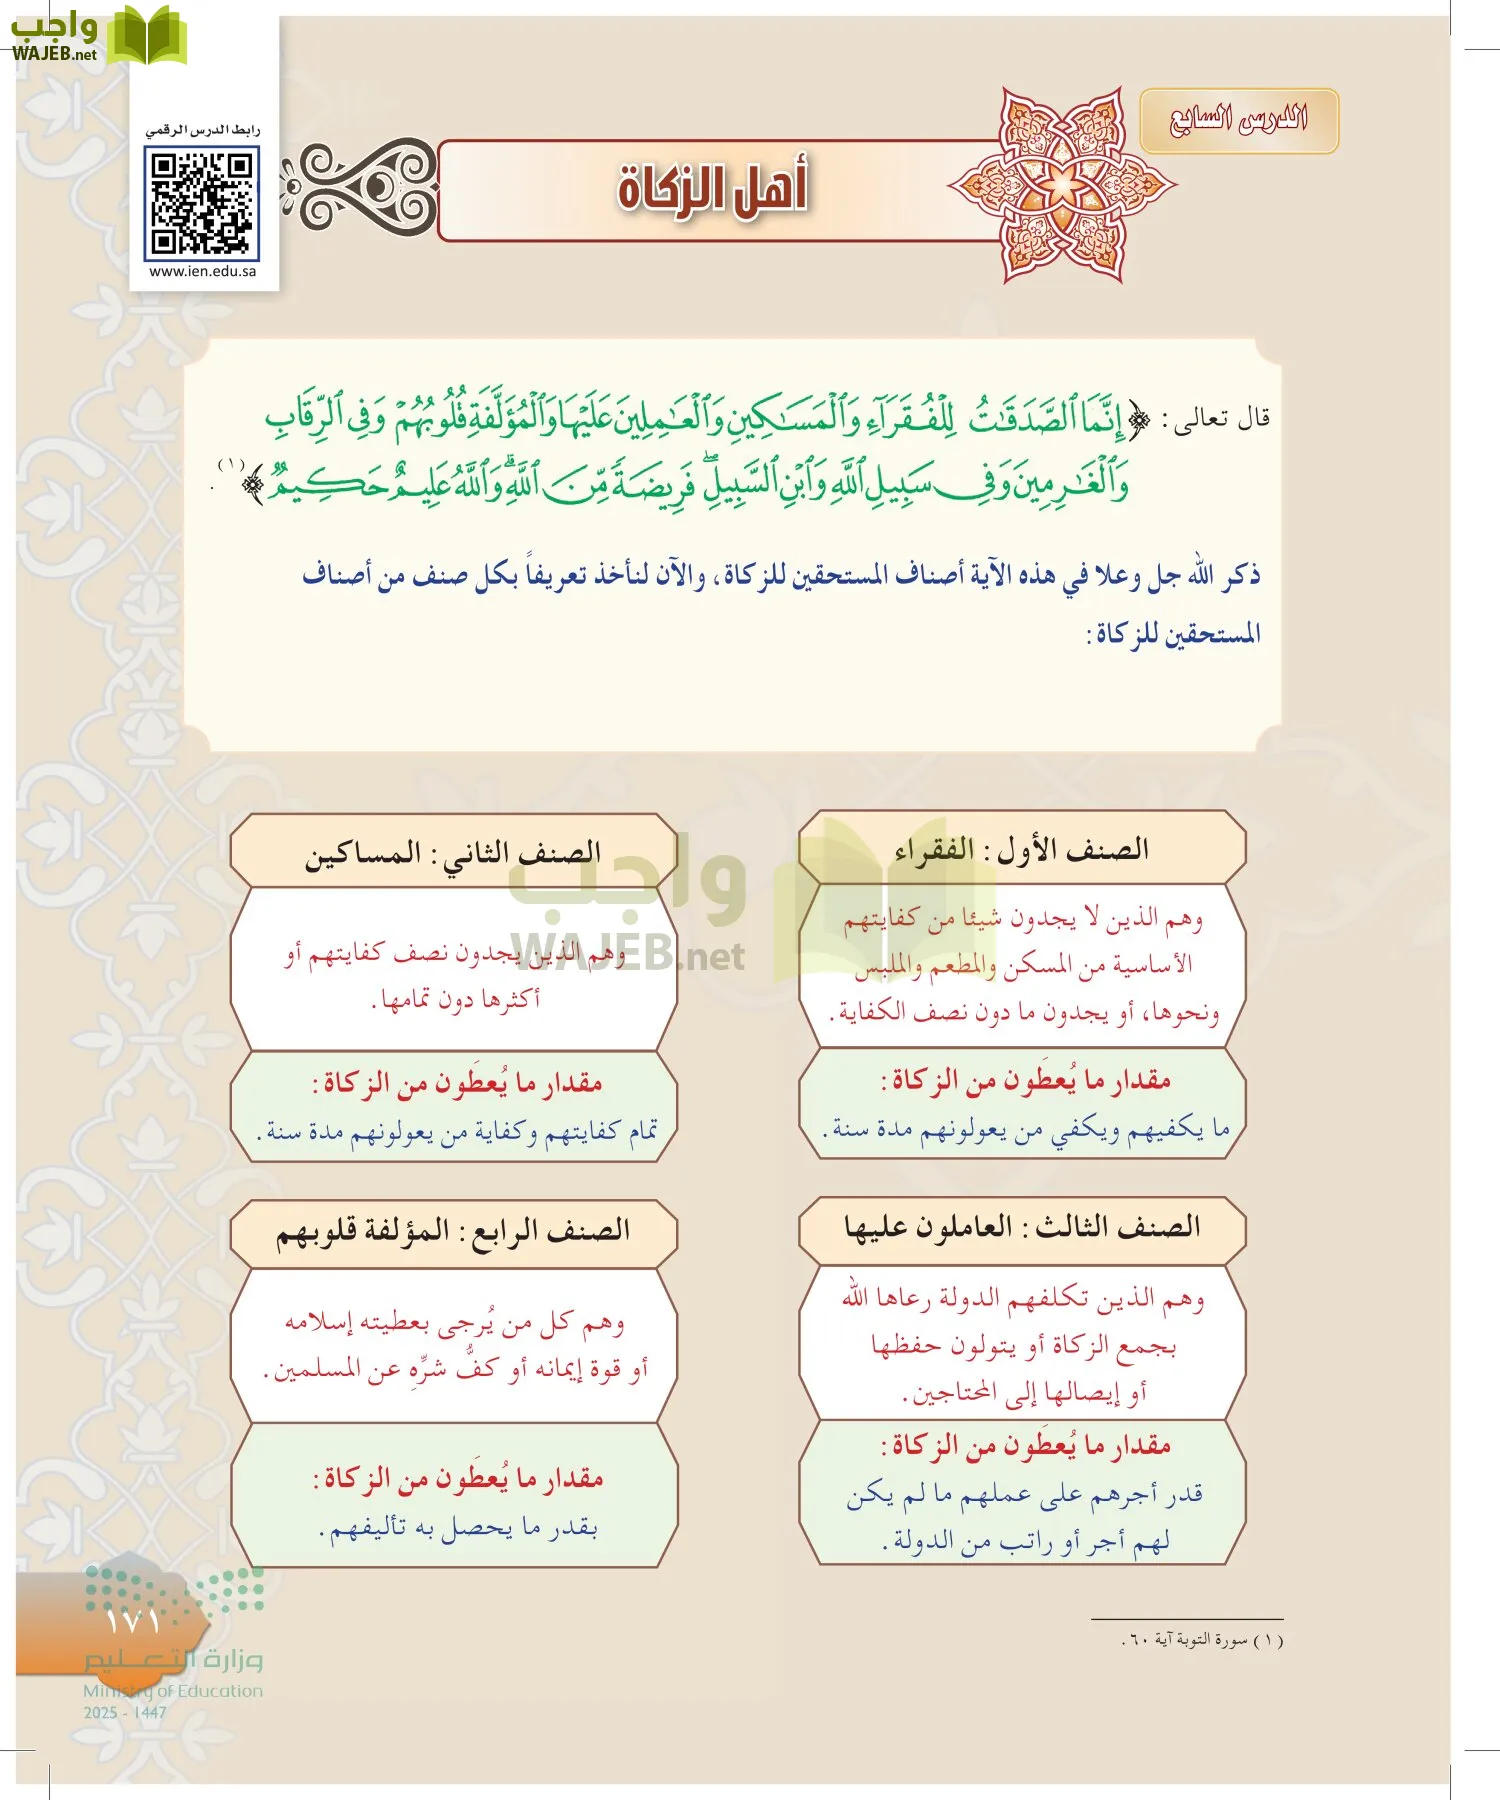 واجب
WAJEB.net
رابط الدرس الرقمي
www.ien.edu.sa
الدرس السابع
أهل الزكاة
قال تعالى: ﴿إِنَّمَا ٱلصَّدَقَٰتُ لِلْفُقَرَآءِ وَٱلْمَسَٰكِينِ وَٱلْعَٰمِلِينَ عَلَيْهَا وَٱلْمُؤَلَّفَةِ قُلُوبُهُمْ وَفِى ٱلرِّقَابِ
وَٱلْغَٰرِمِينَ وَفِى سَبِيلِ ٱللَّهِ وَٱبْنِ ٱلسَّبِيلِۖ فَرِيضَةً مِّنَ ٱللَّهِۗ وَٱللَّهُ عَلِيمٌ حَكِيمٌ﴾(١).
ذكر الله جل وعلا في هذه الآية أصناف المستحقين للزكاة، والآن لنأخذ تعريفاً بكل صنف من أصناف
المستحقين للزكاة:
الصنف الأول: الفقراء
وهم الذين لا يجدون شيئا من كفايتهم
الأساسية من المسكن والمطعم والملبس
ونحوها، أو يجدون ما دون نصف الكفاية.
مقدار ما يُعطَون من الزكاة:
ما يكفيهم ويكفي من يعولونهم مدة سنة.
الصنف الثاني: المساكين
وهم الذين يجدون نصف كفايتهم أو
أكثرها دون تمامها.
مقدار ما يُعطَون من الزكاة:
تمام كفايتهم وكفاية من يعولونهم مدة سنة.
واجب
WAJEB.net
الصنف الثالث: العاملون عليها
وهم الذين تكلفهم الدولة رعاها الله
بجمع الزكاة أو يتولون حفظها
أو إيصالها إلى المحتاجين.
مقدار ما يُعطَون من الزكاة:
قدر أجرهم على عملهم ما لم يكن
لهم أجر أو راتب من الدولة.
الصنف الرابع: المؤلفة قلوبهم
وهم كل من يُرجى بعطيته إسلامه
أو قوة إيمانه أو كفُّ شرِّهِ عن المسلمين.
مقدار ما يُعطَون من الزكاة:
بقدر ما يحصل به تأليفهم.
(١) سورة التوبة آية ٦٠.
١٧١
وزارة التعليم
Ministry of Education
2025 - 1447